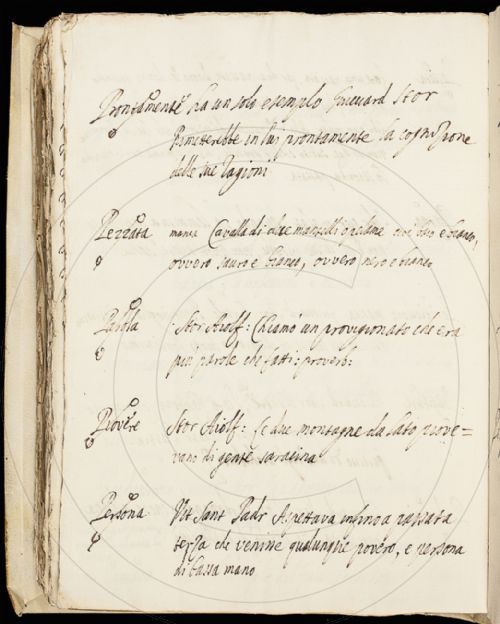 Prontamente ha un solo esempio Guicciard Stor
Rimetterebbe in lui prontamente la cognizione
delle sue ragioni
Pezzata manca Cavalla di due mantelli o pelame cioè e bianco,
ovvero sauro e bianco, ovvero nero e bianco
Parola Stor Aiolf: Chiamò un provigionato che era
più parole che fatti: proverb:
Piovere Stor Aiolf: Le due montagne da lato piove=
vano di gente saracina
Persona Vit Sant Padr Aspettava infino a passata
terza che venisse qualunque povero, e persona
di bassa mano